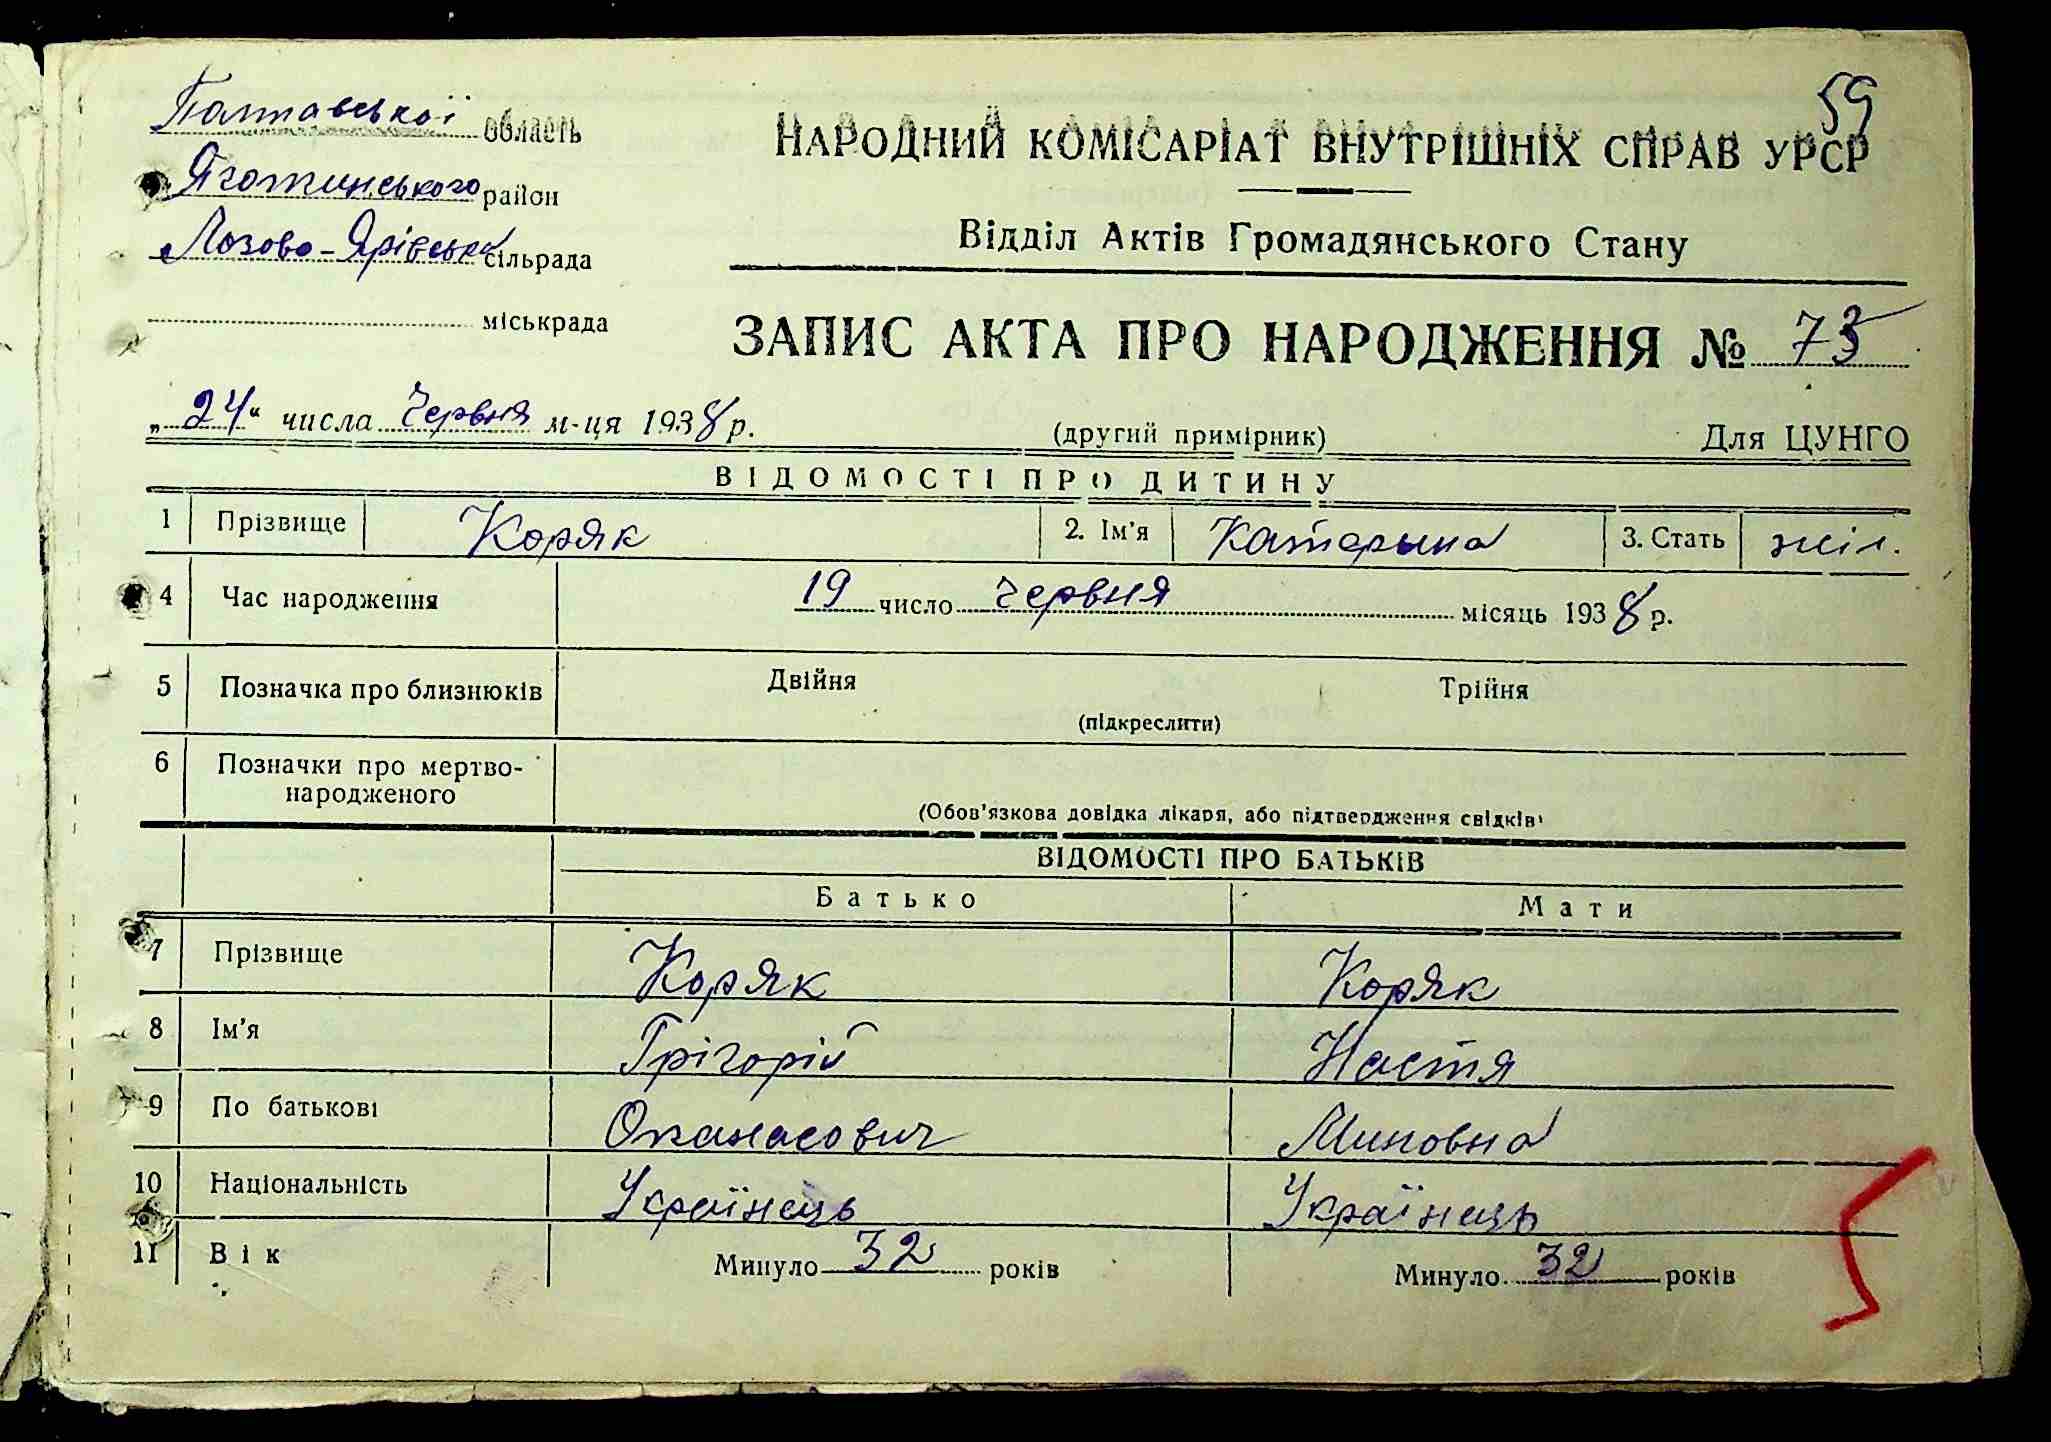 59
Полтавської область
Яготинського район
Лозово-Ярівська сільрада
міськрада
НАРОДНИЙ КОМІСАРІАТ ВНУТРІШНІХ СПРАВ УРСР
Відділ Актів Громадянського Стану
ЗАПИС АКТА ПРО НАРОДЖЕННЯ № 73
„24“ числа Червня м-ця 1938 р.
(другий примірник)
Для ЦУНГО
ВІДОМОСТІ ПРО ДИТИНУ
1 Прізвище Коряк 2. Ім'я Катерина 3. Стать жін.
4 Час народження 19 число Червня місяць 1938 р.
5 Позначка про близнюків Двійня Трійня
(підкреслити)
6 Позначки про мертво-
народженого
(Обов'язкова довідка лікаря, або підтвердження свідків)
ВІДОМОСТІ ПРО БАТЬКІВ
Батько Мати
7 Прізвище Коряк Коряк
8 Ім'я Грігорій Настя
9 По батькові Опанасович Миновна
10 Національність Українець Українець
11 Вік Минуло 32 років Минуло 32 років